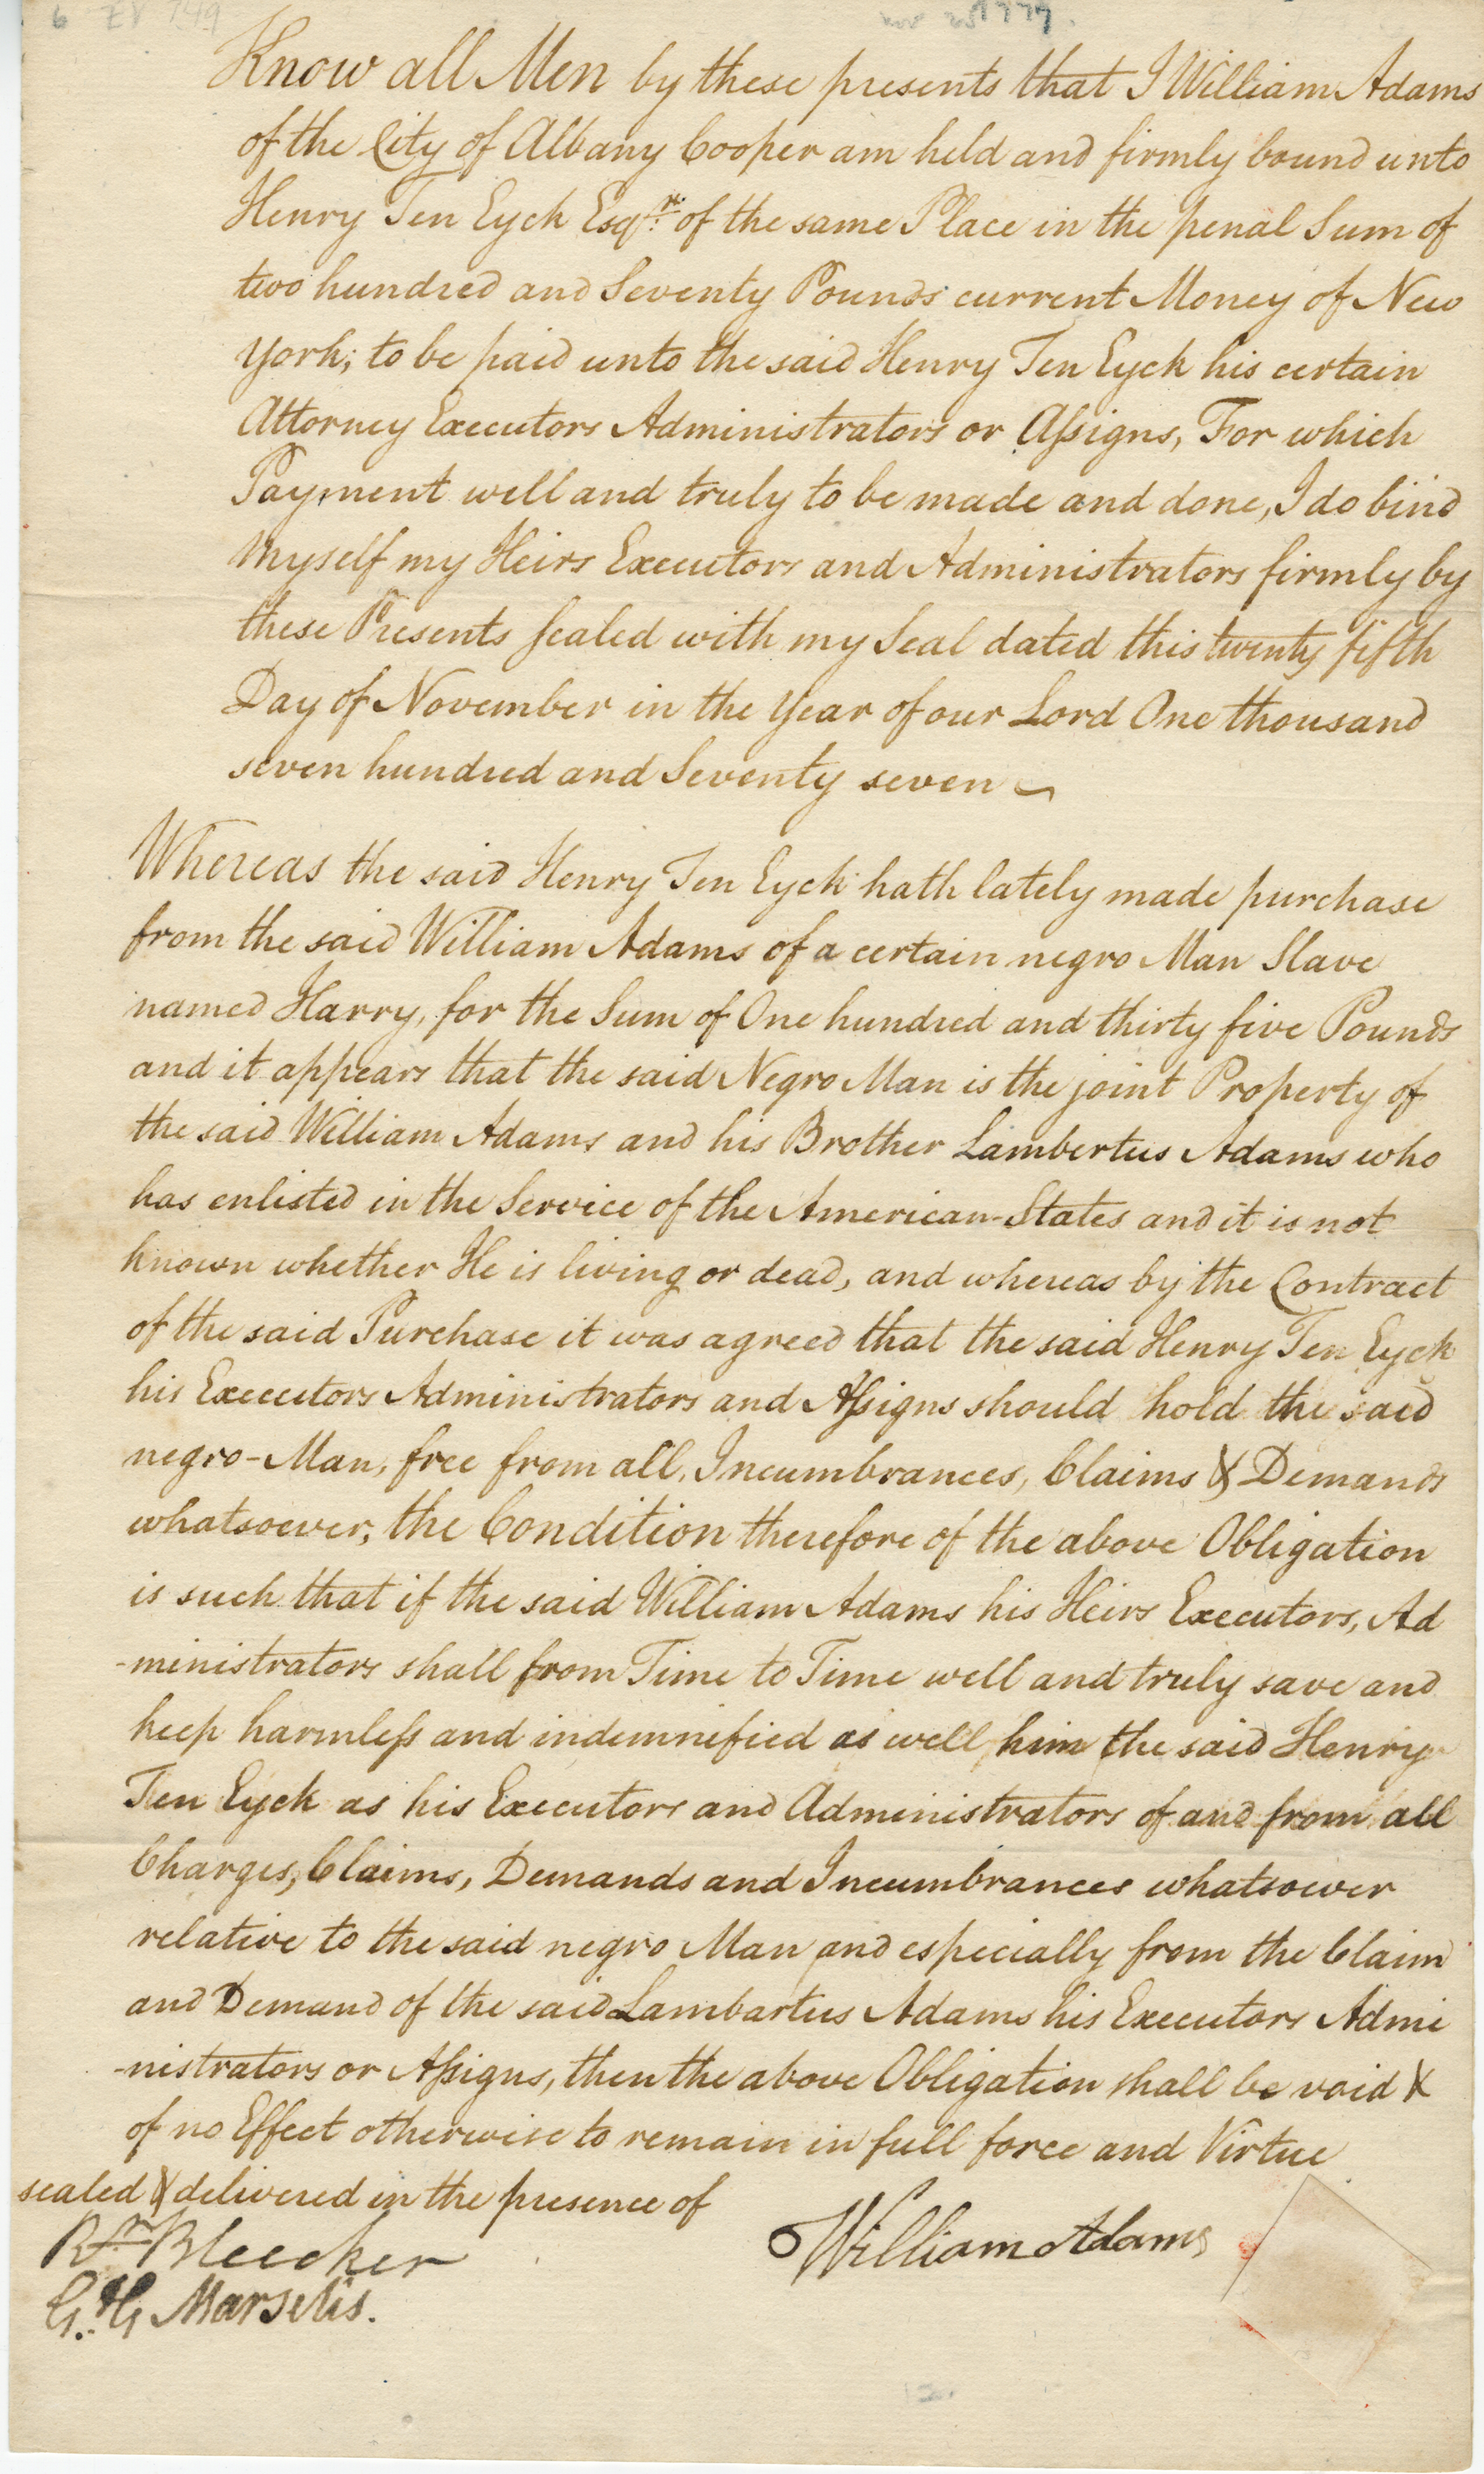 6 EV 749
nov 25 1777.
Know all Men by these presents that I William Adams
of the City of Albany Cooper am held and firmly bound unto
Henry Ten Eyck Esqr. of the same Place in the penal Sum of
two hundred and Seventy Pounds current Money of New
York; to be paid unto the said Henry Ten Eyck his certain
Attorney Executors Administrators or Assigns, For which
Payment well and truly to be made and done, I do bind
myself my Heirs Executors and Administrators firmly by
these Presents sealed with my Seal dated this twenty fifth
Day of November in the Year of our Lord One thousand
seven hundred and Seventy seven
Whereas the said Henry Ten Eyck hath lately made purchase
from the said William Adams of a certain negro Man Slave
named Harry, for the Sum of One hundred and thirty five Pounds
and it appears that the said Negro Man is the joint Property of
the said William Adams and his Brother Lambertus Adams who
has enlisted in the Service of the American-States and it is not
known whether He is living or dead, and whereas by the Contract
of the said Purchase it was agreed that the said Henry Ten Eyck
his Executors Administrators and Assigns should hold the said
negro-Man, free from all, Incumbrances, Claims & Demands
whatsoever, the Condition therefore of the above Obligation
is such that if the said William Adams his Heirs Executors, Ad
-ministrators shall from Time to Time well and truly save and
keep harmless and indemnified as well him the said Henry
Ten Eyck as his Executors and Administrators of and from all
Charges, Claims, Demands and Incumbrances whatsoever
relative to the said negro Man and especially from the Claim
and Demand of the said Lambartus Adams his Executors Admi
-nistrators or Assigns, then the above Obligation shall be void &
of no Effect otherwise to remain in full force and Virtue
sealed & delivered in the presence of
Rr. Bleecker
William Adams
G. G Marselis.